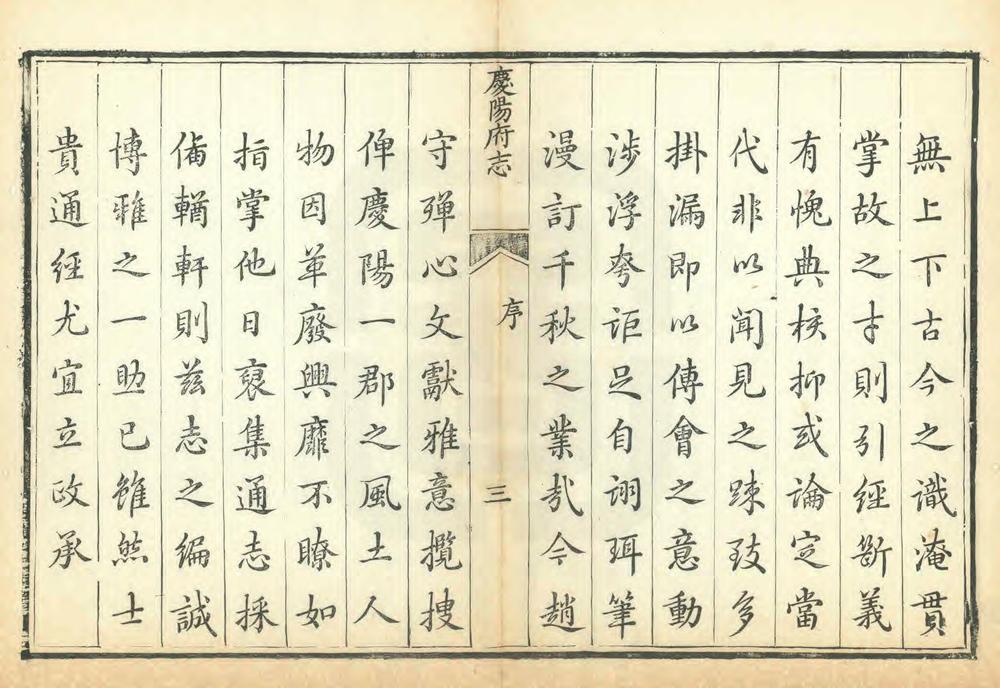 無上下古今之識淹貫
掌故之才則引經斷義
有愧典核抑或論定當
代非以聞見之踈致多
掛漏即以傅會之意動
涉浮夸詎足自詡珥筆
漫訂千秋之業㢤今趙
慶陽府志
序
三
守殫心文獻雅意攬搜
俾慶陽一郡之風土人
物因革廢興靡不瞭如
指掌他日裒集通志採
備輶軒則茲志之編誠
博雅之一助已雖然士
貴通經尤宜立政承